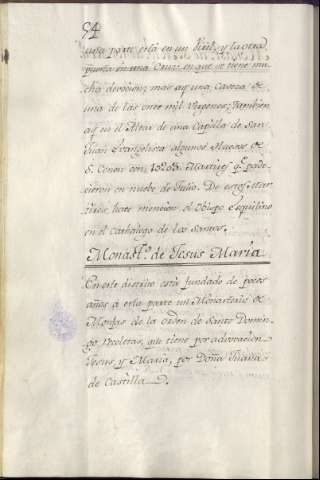 54
una parte está en un Viril, y la otra
puesta en una Cruz en que se tiene mu-
cha devocion; mas ay una Caveza de
una de las once mil Virgenes: Tambien
ay en el Altar de una Capilla de San
Juan Evangelista algunos Huesos de
S. Cenon con Martires q.e pade-
cieron en nuebe de Julio. De estos Mar-
tires hace mencion el Obispo Equilino
en el Cathalogo de los Santos.
Monast.o de Jesus Maria
En este distrito está fundado de pocos
años a esta parte un Monasterio de
Monjas de la orden de Santo Domin-
go, Recoletas, que tiene por advocacion
Jesus, y Maria, por Doña Juana
de Castilla